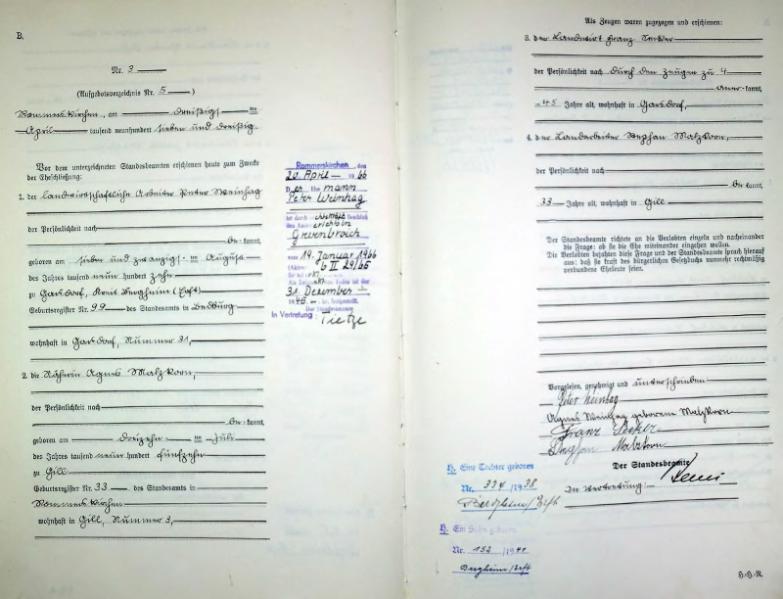 B.
Nr. 3
(Aufgebotsverzeichnis Nr. 5)
Rommerskirchen, am dreißigsten
April tausend neunhundert sieben und dreißig.
Vor dem unterzeichneten Standesbeamten erschienen heute zum Zwecke
der Eheschließung:
1. der landwirtschaftliche Arbeiter Peter Weinhag
der Persönlichkeit nach
be- kannt,
geboren am sieben und zwanzigsten August
des Jahres tausend neun hundert zehn
zu Garsdorf, Kreis Bergheim (Erft)
Geburtsregister Nr. 99 des Standesamts in Bedburg
wohnhaft in Garsdorf, Nummer 31,
2. die Näherin Agnes Malzkorn,
der Persönlichkeit nach
be- kannt,
geboren am dreizehnten Juli
des Jahres tausend neun hundert fünfzehn
zu Gill
Geburtsregister Nr. 33 des Standesamts in
Rommerskirchen
wohnhaft in Gill, Nummer 3,
Rommerskirchen, den
20. April 1966
Der Ehemann
Peter Weinhag
ist durch Beschluß
des Amtsgerichts in
Grevenbroich
vom 19. Januar 1966
(Akten: 6 II 29/65
für tot erklärt.
Als Zeitpunkt des Todes ist der
31. Dezember
1945 festgestellt.
Der Standesbeamte
In Vertretung: Tietze
Als Zeugen waren zugezogen und erschienen:
3. der Landwirt Franz
der Persönlichkeit nach durch den Zeugen zu 4
aner- kannt,
45 Jahre alt, wohnhaft in Garsdorf,
4. der Landarbeiter Stephan Malzkorn,
der Persönlichkeit nach
be- kannt,
33 Jahre alt, wohnhaft in Gill
Der Standesbeamte richtete an die Verlobten einzeln und nacheinander
die Frage: ob sie die Ehe miteinander eingehen wollen.
Die Verlobten bejahten diese Frage und der Standesbeamte sprach hierauf
aus: daß sie kraft des bürgerlichen Gesetzbuchs nunmehr rechtmäßig
verbundene Eheleute seien.
Vorgelesen, genehmigt und unterschrieben
Peter Weinhag
Agnes Weinhag geborene Malzkorn
Franz
Stephan Malzkorn
Der Standesbeamte
In Vertretung:
H. Eine Tochter geboren
Nr. 334/1938
Bergheim/Erft
H. Ein Sohn geboren
Nr. 152/1941
Bergheim/Erft